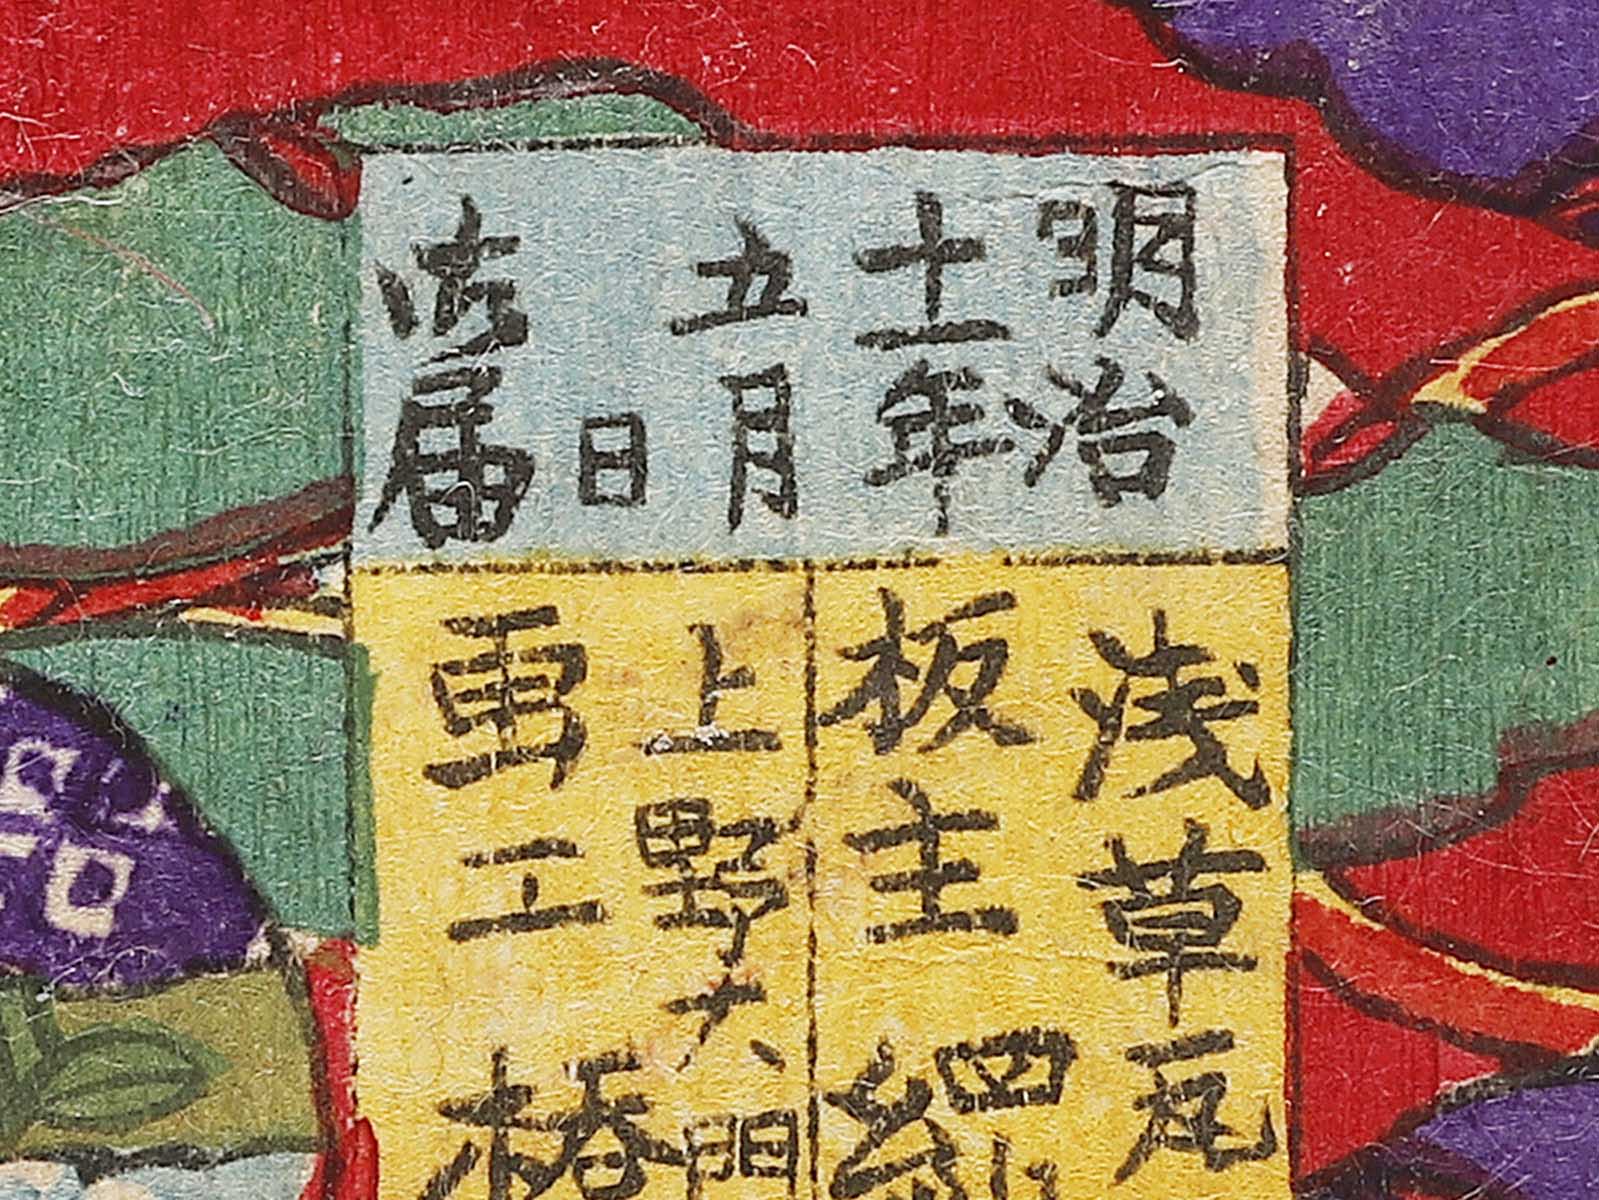 明治
十一年
五月
日
御届
浅草瓦
板主 綱
上野大門
画工 橋